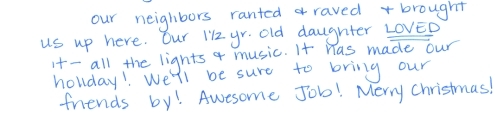 our neighbors ranted & raved & brought
us up here. Our 1½ yr. old daughter LOVED
it - all the lights & music. It has made our
holiday! We'll be sure to bring our
friends by! Awesome Job! Merry Christmas!